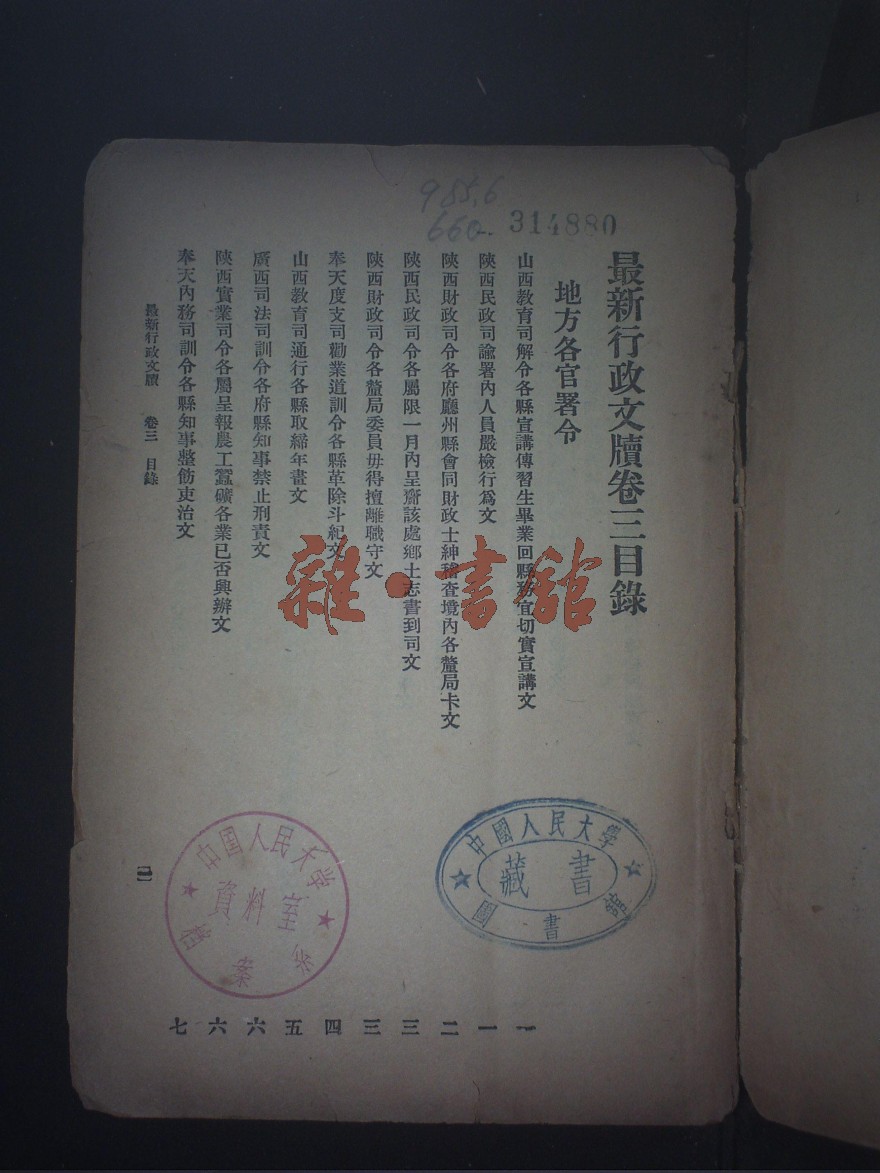 985.6
660. 314880
最新行政文牘卷三目錄
地方各官署令
山西教育司解令各縣宣講傳習生畢業回縣務宜切實宣講文 一
陝西民政司諭署內人員嚴檢行爲文 一
陝西財政司令各府廳州縣會同財政士紳稽查境內各釐局卡文 二
陝西民政司令各屬限一月內呈齎該處鄉土志書到司文 三
陝西財政司令各釐局委員毋得擅離職守文 三
奉天度支司勸業道訓令各縣革除斗紀文 四
山西教育司通行各縣取締年畫文 五
廣西司法司訓令各府縣知事禁止刑責文 六
陝西實業司令各屬呈報農工蠶礦各業已否興辦文 六
奉天內務司訓令各縣知事整飭吏治文 七
最新行政文牘 卷三 目錄
一
雜·書館
中國人民大學
藏書
圖書館
中国人民大学
資料室
檔案系